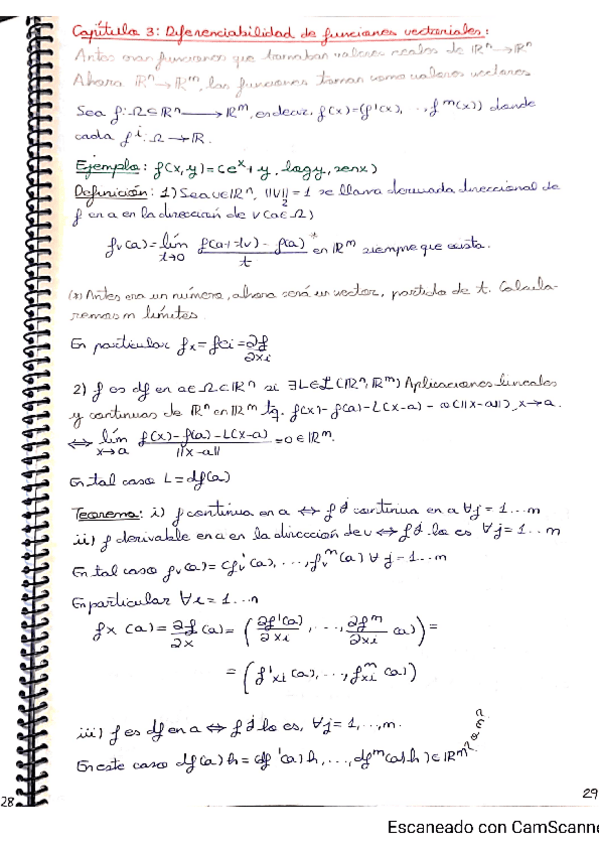 Capítulo 3: Diferenciabilidad de funciones vectoriales:
Antes eran funciones que tomaban valores reales de ℝⁿ→ℝⁿ
Ahora ℝⁿ→ℝᵐ, las funciones toman como valores vectores
Sea f: Ω⊆ℝⁿ→ℝᵐ, es decir, f(x)=(f¹(x), ..., fᵐ(x)) donde
cada fⁱ: Ω→ℝ.
Ejemplo: f(x,y)=(eˣ+y, log y, sen x)
Definición: 1) Sea v∈ℝⁿ, ||v||₂=1 se llama derivada direccional de
f en a en la dirección de v (a∈Ω)
fv(a)=lím t→0 (f(a+tv)-f(a))/t * en ℝᵐ siempre que exista.
(*) Antes era un número, ahora será un vector, partido de t. Calcula-
remos m límites.
En particular fx=fei=∂f/∂xi
2) f es df en a∈Ω⊂ℝⁿ si ∃L∈ℒ(ℝⁿ,ℝᵐ) Aplicaciones lineales
y continuas de ℝⁿ en ℝᵐ tq. f(x)-f(a)-L(x-a)=o(||x-a||), x→a.
⇔ lím x→a (f(x)-f(a)-L(x-a))/||x-a||=0∈ℝᵐ.
En tal caso L=df(a)
Teorema: i) f continua en a ⇔ fʲ continua en a ∀j=1...m
ii) f derivable en a en la dirección de v ⇔ fʲ lo es ∀j=1...m
En tal caso fv(a)=(fv¹(a), ..., fvᵐ(a)) ∀j=1...m
En particular ∀i=1...n
fx(a)=∂f/∂x(a)=(∂f¹(a)/∂xi, ..., ∂fᵐ/∂xi(a))=
=(f¹xi(a), ..., fᵐxi(a))
iii) f es df en a ⇔ fʲ lo es, ∀j=1,...,m.
En este caso df(a)h=(df¹(a)h, ..., dfᵐ(a)h)∈ℝᵐ
28
29
Escaneado con CamScanne